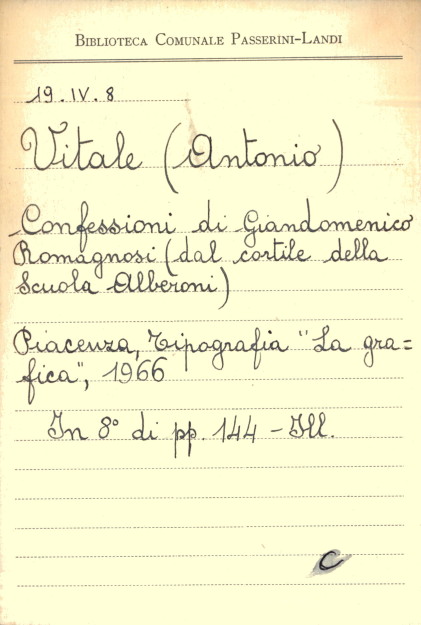 BIBLIOTECA COMUNALE PASSERINI-LANDI
19.IV.8
Vitale (Antonio)
Confessioni di Giandomenico
Romagnosi (dal cortile della
Scuola Alberoni)
Piacenza, Tipografia "La gra=
fica", 1966
In 8° di pp. 144 - Ill.
C